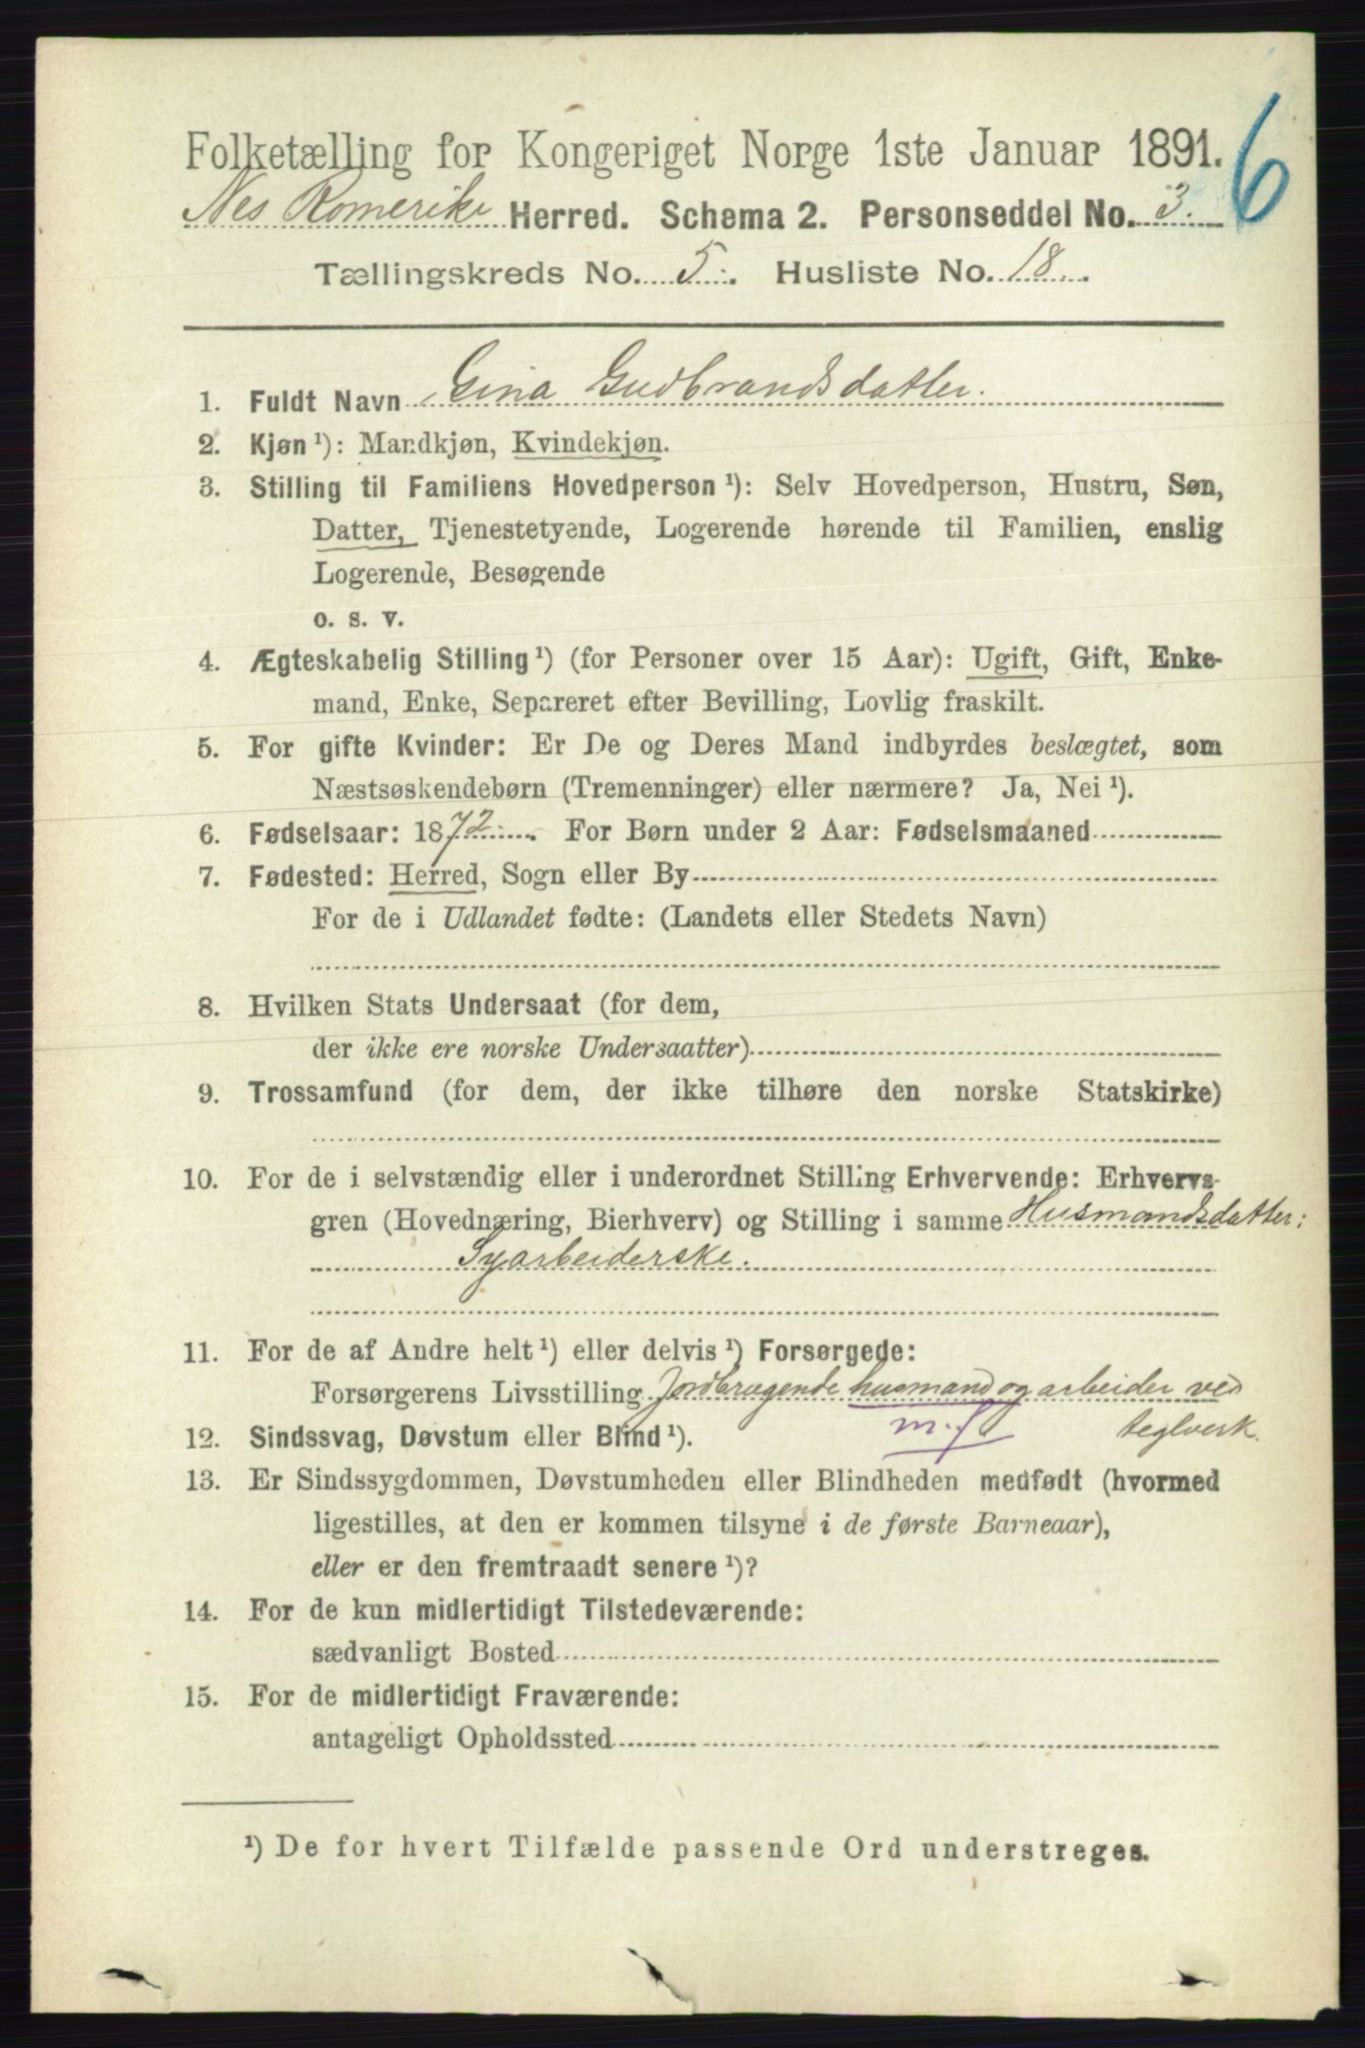 6
Folketælling for Kongeriget Norge 1ste Januar 1891.
Nes Romerike Herred. Schema 2. Personseddel No. 3.
Tællingskreds No. 5. Husliste No. 18.
1. Fuldt Navn Gina Gudbrandsdatter.
2. Kjøn ¹): Mandkjøn, Kvindekjøn.
3. Stilling til Familiens Hovedperson ¹): Selv Hovedperson, Hustru, Søn,
Datter, Tjenestetyende, Logerende hørende til Familien, enslig
Logerende, Besøgende
o. s. v.
4. Ægteskabelig Stilling ¹) (for Personer over 15 Aar): Ugift, Gift, Enke-
mand, Enke, Separeret efter Bevilling, Lovlig fraskilt.
5. For gifte Kvinder: Er De og Deres Mand indbyrdes beslægtet, som
Næstsøskendebørn (Tremenninger) eller nærmere? Ja, Nei ¹).
6. Fødselsaar: 1872. For Børn under 2 Aar: Fødselsmaaned
7. Fødested: Herred, Sogn eller By
For de i Udlandet fødte: (Landets eller Stedets Navn)
8. Hvilken Stats Undersaat (for dem,
der ikke ere norske Undersaatter)
9. Trossamfund (for dem, der ikke tilhøre den norske Statskirke)
10. For de i selvstændig eller i underordnet Stilling Erhvervende: Erhvervs-
gren (Hovednæring, Bierhverv) og Stilling i samme Husmandsdatter:
Syarbeiderske.
11. For de af Andre helt ¹) eller delvis ¹) Forsørgede:
Forsørgerens Livsstilling Jordbrugende husmand og arbeider ved
12. Sindssvag, Døvstum eller Blind ¹). m. f teglverk.
13. Er Sindssygdommen, Døvstumheden eller Blindheden medfødt (hvormed
ligestilles, at den er kommen tilsyne i de første Barneaar),
eller er den fremtraadt senere ¹)?
14. For de kun midlertidigt Tilstedeværende:
sædvanligt Bosted
15. For de midlertidigt Fraværende:
antageligt Opholdssted
¹) De for hvert Tilfælde passende Ord understreges.